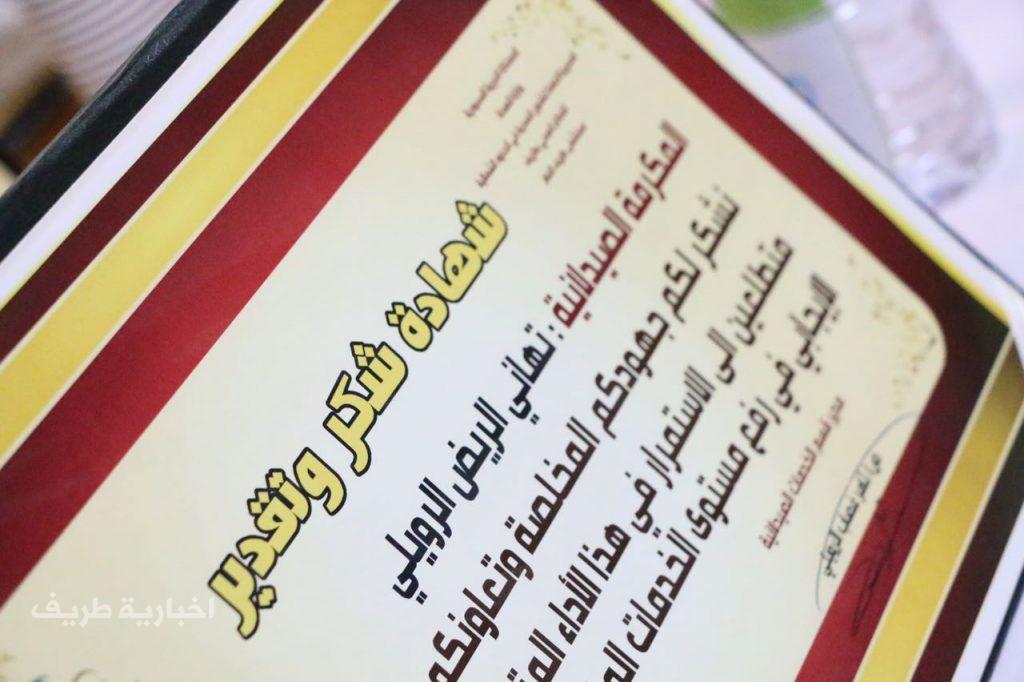 المملكة العربية السعودية
وزارة الصحة
شهادة شكر وتقدير
المكرمة الصيدلانية : تهاني الريض الرويلي
نشكر لكم جهودكم المخلصة وتعاونكم
متطلعين الى الاستمرار في هذا الأداء
الايجابي في رفع مستوى الخدمات
مدير قسم الخدمات الصيدلانية
اخبارية طريف